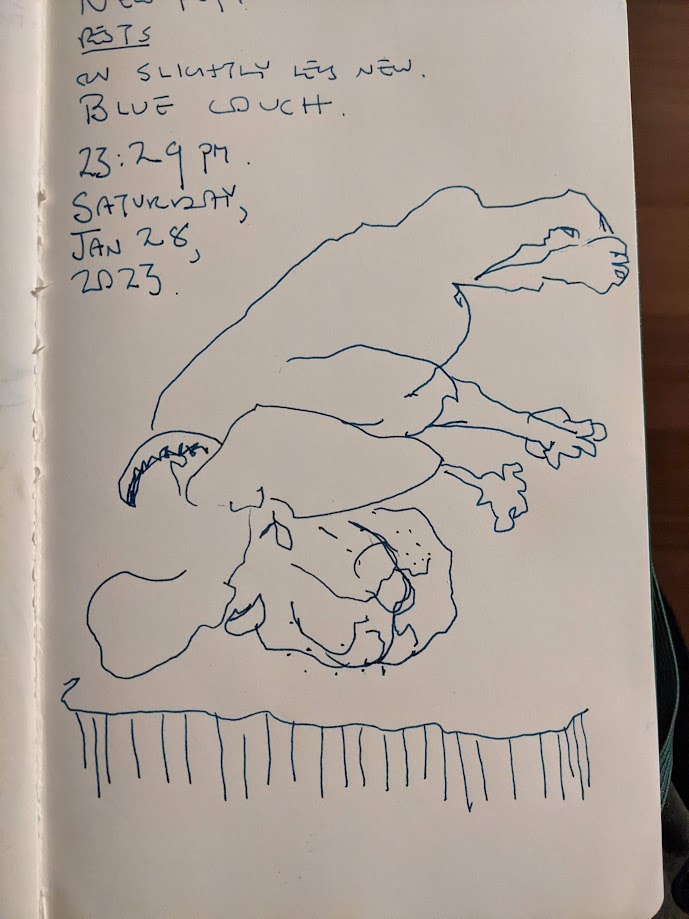 NEW
RESTS
ON SLIGHTLY LESS NEW.
BLUE COUCH.
23:29 PM.
SATURDAY,
JAN 28,
2023.